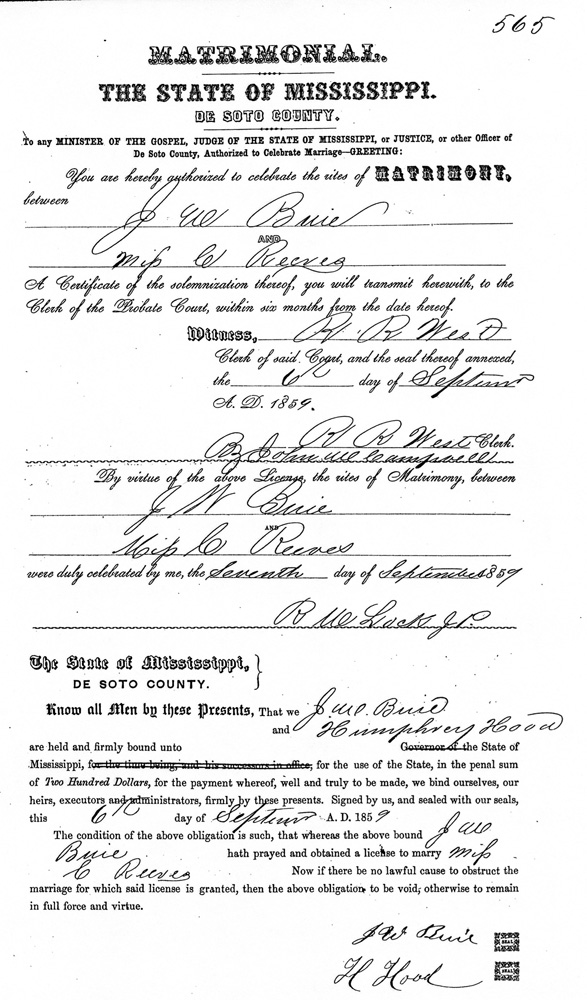 565
MATRIMONIAL.
THE STATE OF MISSISSIPPI.
DE SOTO COUNTY.
To any MINISTER OF THE GOSPEL, JUDGE OF THE STATE OF MISSISSIPPI, or JUSTICE, or other Officer of
De Soto County, Authorized to Celebrate Marriage—GREETING:
You are hereby authorized to celebrate the rites of MATRIMONY,
between
J W Buie
AND
Miss C Reeves
A Certificate of the solemnization thereof, you will transmit herewith, to the
Clerk of the Probate Court, within six months from the date hereof.
Witness, R R West
Clerk of said Court, and the seal thereof annexed,
the 6th day of Septem
A. D. 1859.
R R West Clerk.
By John W Campbell
By virtue of the above License, the rites of Matrimony, between
J W Buie
AND
Miss C Reeves
were duly celebrated by me, the Seventh day of September 1859
R W Lock J.P.
The State of Mississippi,
DE SOTO COUNTY.
Know all Men by these Presents, That we J W Buie
and Humphrey Hood
are held and firmly bound unto Governor of the State of
Mississippi, for the time being, and his successors in office, for the use of the State, in the penal sum
of Two Hundred Dollars, for the payment whereof, well and truly to be made, we bind ourselves, our
heirs, executors and administrators, firmly by these presents. Signed by us, and sealed with our seals,
this 6th day of Septem A. D. 1859
The condition of the above obligation is such, that whereas the above bound J W
Buie hath prayed and obtained a license to marry Miss
C Reeves Now if there be no lawful cause to obstruct the
marriage for which said license is granted, then the above obligation to be void; otherwise to remain
in full force and virtue.
J W Buie SEAL
H Hood SEAL